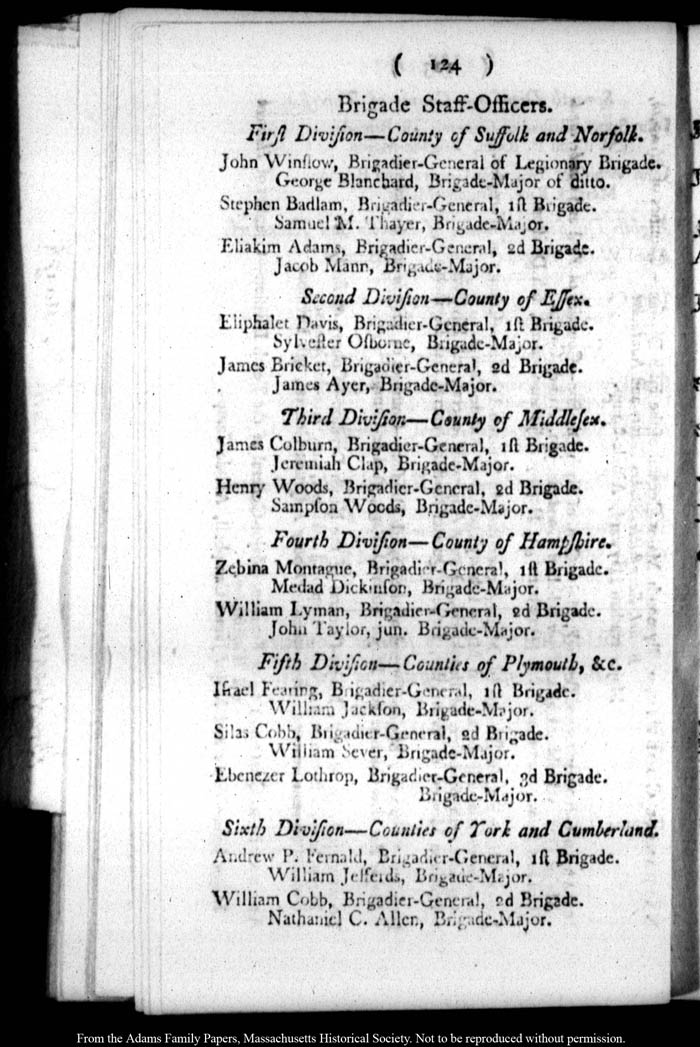 ( 124 )
Brigade Staff-Officers.
Firſt Diviſion—County of Suffolk and Norfolk.
John Winſlow, Brigadier-General of Legionary Brigade.
George Blanchard, Brigade-Major of ditto.
Stephen Badlam, Brigadier-General, 1ſt Brigade.
Samuel M. Thayer, Brigade-Major.
Eliakim Adams, Brigadier-General, 2d Brigade.
Jacob Mann, Brigade-Major.
Second Diviſion—County of Eſſex.
Eliphalet Davis, Brigadier-General, 1ſt Brigade.
Sylveſter Oſborne, Brigade-Major.
James Bricket, Brigadier-General, 2d Brigade.
James Ayer, Brigade-Major.
Third Diviſion—County of Middleſex.
James Colburn, Brigadier-General, 1ſt Brigade.
Jeremiah Clap, Brigade-Major.
Henry Woods, Brigadier-General, 2d Brigade.
Sampſon Woods, Brigade-Major.
Fourth Diviſion—County of Hampſhire.
Zebina Montague, Brigadier-General, 1ſt Brigade.
Medad Dickinſon, Brigade-Major.
William Lyman, Brigadier-General, 2d Brigade.
John Taylor, jun. Brigade-Major.
Fifth Diviſion—Counties of Plymouth, &c.
Iſrael Fearing, Brigadier-General, 1ſt Brigade.
William Jackſon, Brigade-Major.
Silas Cobb, Brigadier-General, 2d Brigade.
William Sever, Brigade-Major.
Ebenezer Lothrop, Brigadier-General, 3d Brigade.
Brigade-Major.
Sixth Diviſion—Counties of York and Cumberland.
Andrew P. Fernald, Brigadier-General, 1ſt Brigade.
William Jefferds, Brigade-Major.
William Cobb, Brigadier-General, 2d Brigade.
Nathaniel C. Allen, Brigade-Major.
From the Adams Family Papers, Massachusetts Historical Society. Not to be reproduced without permission.